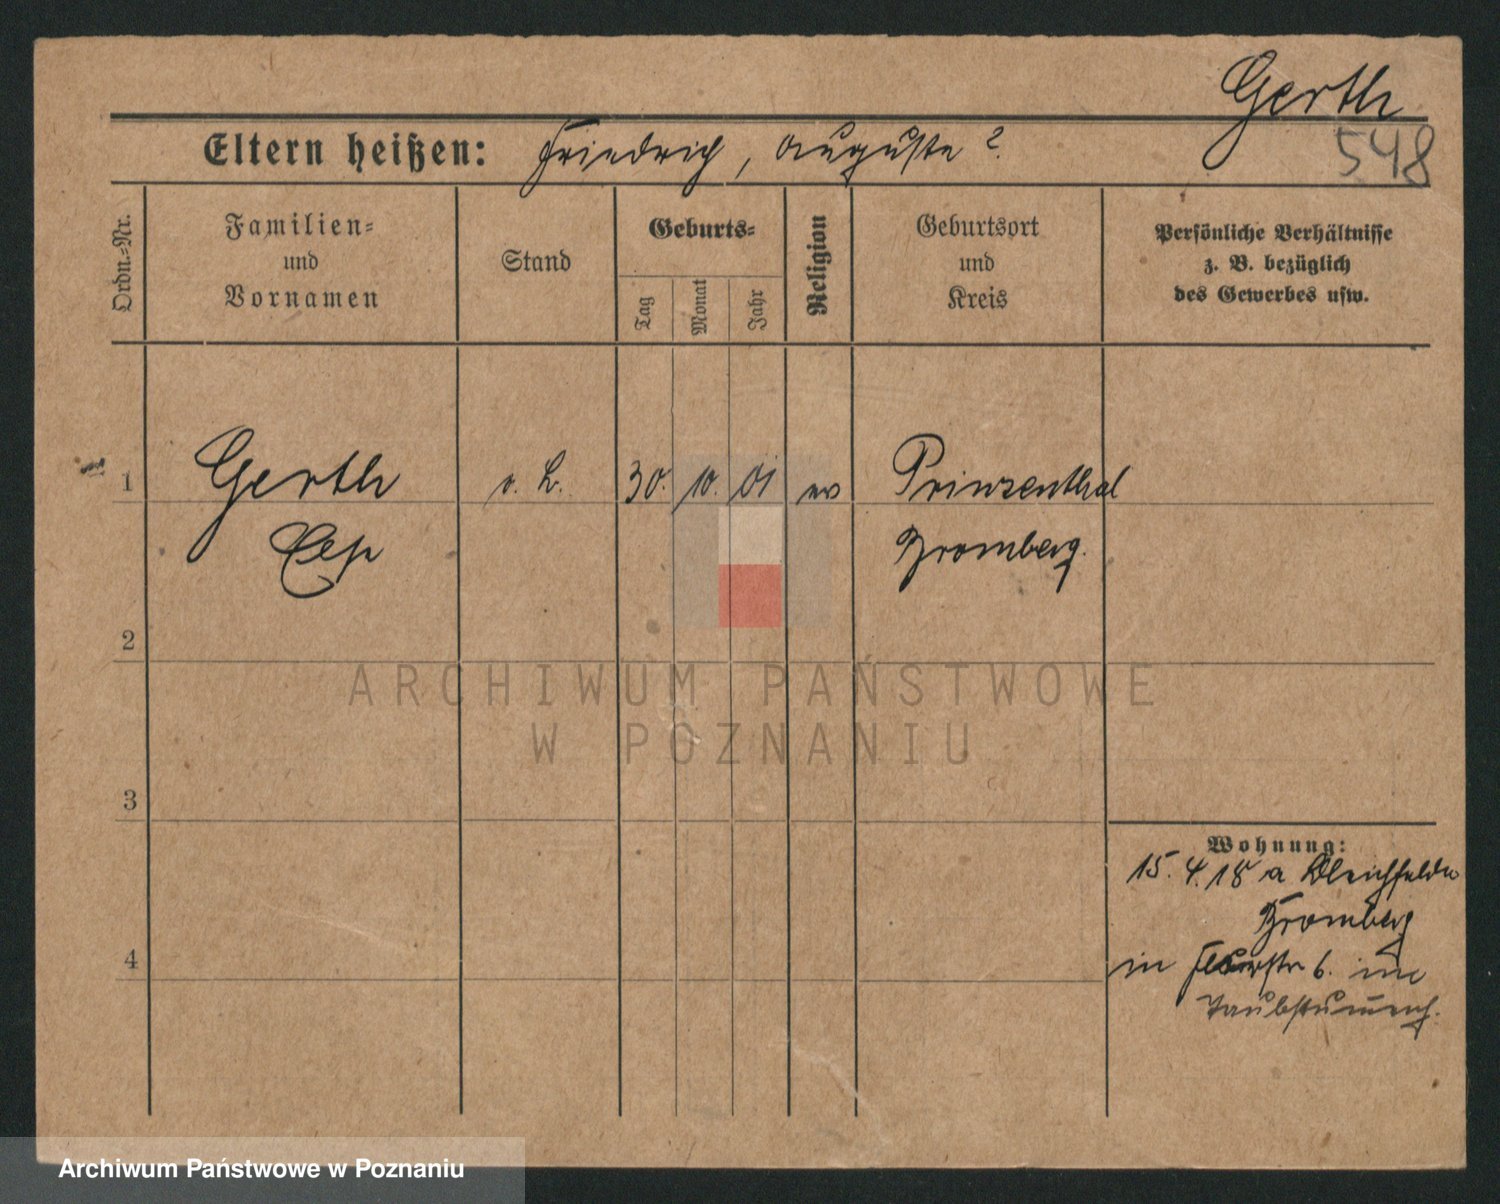 Gerth
548
Eltern heißen: Friedrich, Auguste ?
Ordn.-Nr.
Familien=
und
Vornamen
Stand
Geburts=
Tag
Monat
Jahr
Religion
Geburtsort
und
Kreis
Persönliche Verhältnisse
z. B. bezüglich
des Gewerbes usw.
1
Gerth
30. 10. 01 ev
Prinzenthal
Bromberg.
2
ARCHIWUM PAŃSTWOWE
W POZNANIU
3
Wohnung:
15. 4. 18 a Bleichfelde
Bromberg
in 6. im
Taubstummen
4
Archiwum Państwowe w Poznaniu